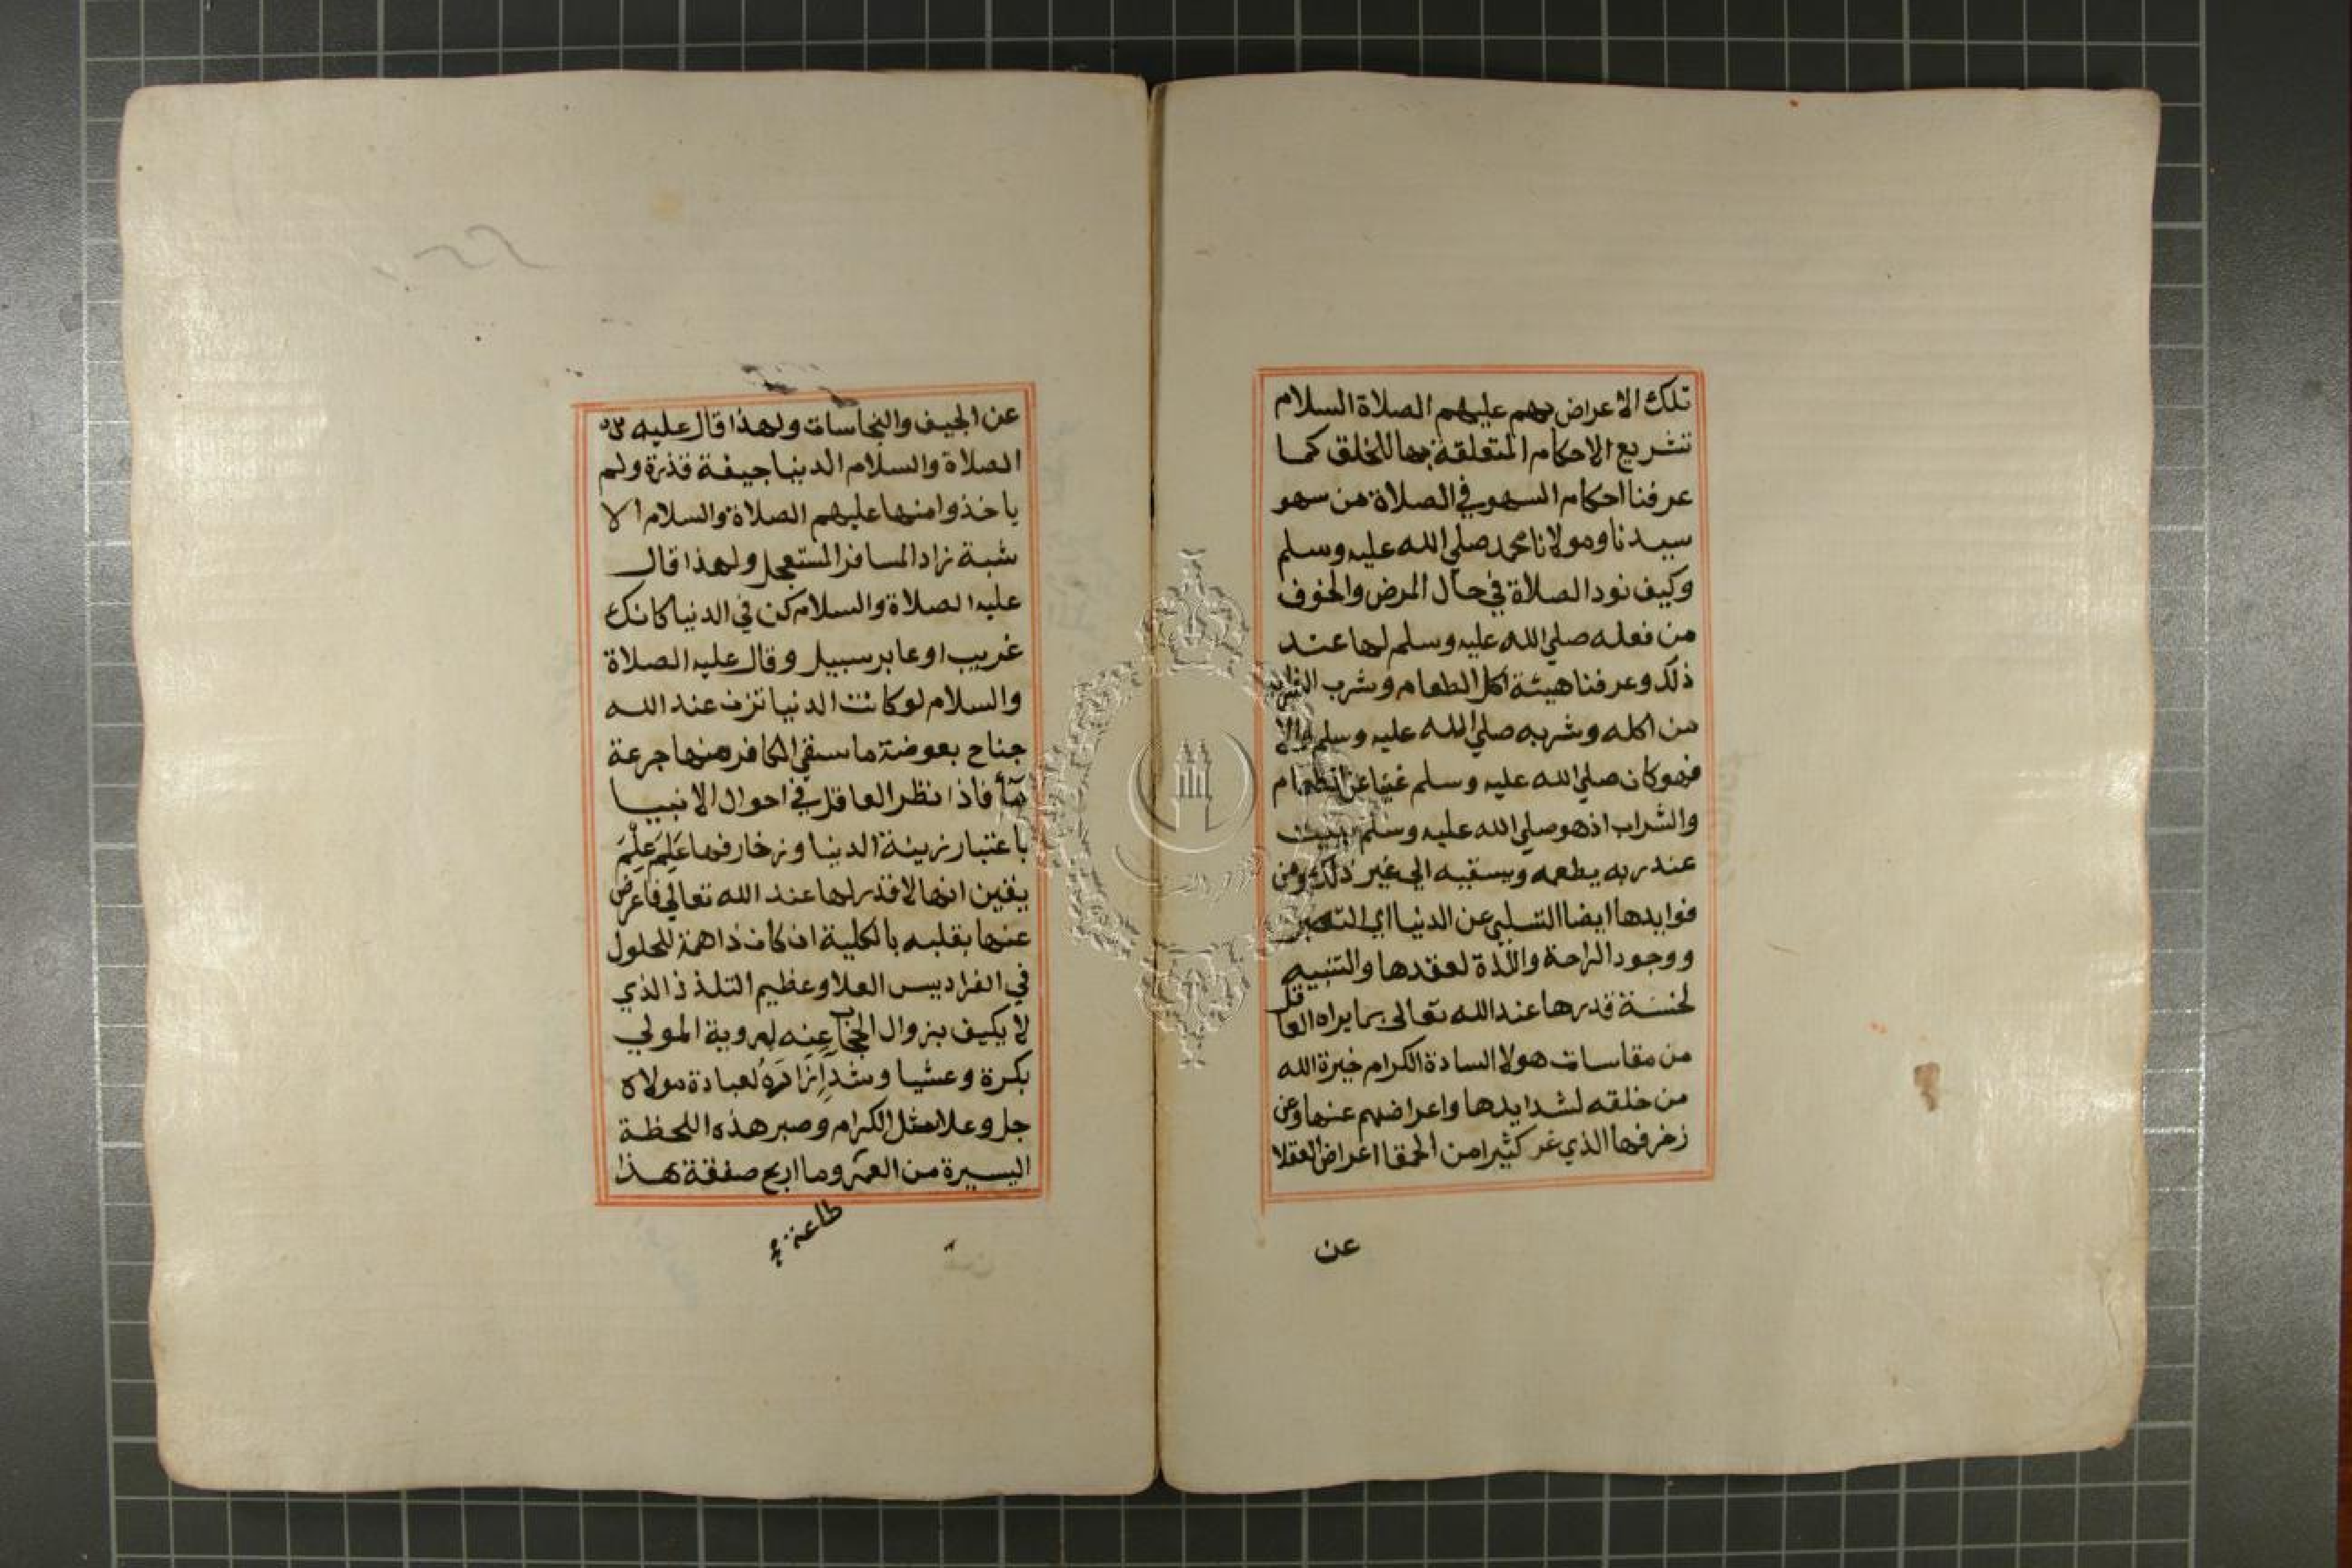 تلك الاعراض بهم عليهم الصلاة السلام
تشريع الاحكام المتعلقة بها للخلق كما
عرفنا احكام السهو في الصلاة من سهو
سيدنا ومولانا محمد صلي الله عليه وسلم
وكيف نود الصلاة في حال المرض والخوف
من فعله صلي الله عليه وسلم لها عند
ذلك وعرفنا هيئة اكل الطعام وشرب الشراب
من اكله وشربه صلي الله عليه وسلم والا
فهو كان صلي الله عليه وسلم غنيا عن الطعام
والشراب اذ هو صلي الله عليه وسلم يبيت
عند ربه يطعمه ويسقيه الي غير ذلك ومن
فوايدها ايضا التسلي عن الدنيا اي التصبر
ووجود الراحة واللذة لفقدها والتنبيه
لخسة قدرها عند الله تعالى بما يراه العاقل
من مقاسات هولا السادة الكرام خيرة الله
من خلقه لشدايدها واعراضهم عنها وعن
زخرفها الذي غر كثيرا من الحمقا اعراض العقلا
عن
عن الجيف والنجاسات ولهذا قال عليه
الصلاة والسلام الدنيا جيفة قذرة ولم
ياخذوا منها عليهم الصلاة والسلام الا
شبة زاد المسافر المستعجل ولهذا قال
عليه الصلاة والسلام كن في الدنيا كانك
غريب او عابر سبيل وقال عليه الصلاة
والسلام لو كانت الدنيا تزن عند الله
جناح بعوضة ما سقي الكافر منها جرعة
مآ فاذا نظر العاقل في احوال الانبيا
باعتبار زينة الدنيا وزخارفها عَلِمَ عِلْمَ
يقين انها لا قدر لها عند الله تعالي فاعرض
عنها بقلبه بالكلية ان كان ذا همة للحلول
في الفراديس العلا وعظيم التلذذ الذي
لا يكيف بزوال الحجاب عنه لروية المولي
بكرة وعشيا وشد إزاره لعبادة مولاه
جل وعلا مثل الكرام وصبر هذه اللحظة
اليسيرة من العمر وما اربح صفقة هذا
طاعة